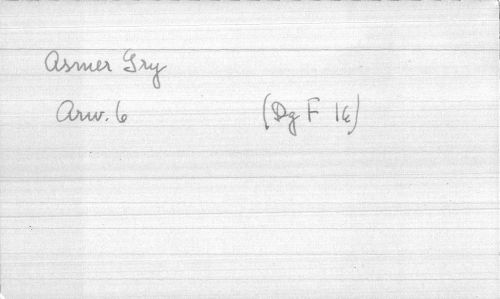 Asmer Gry
Arw. 6 (Dg F 16)